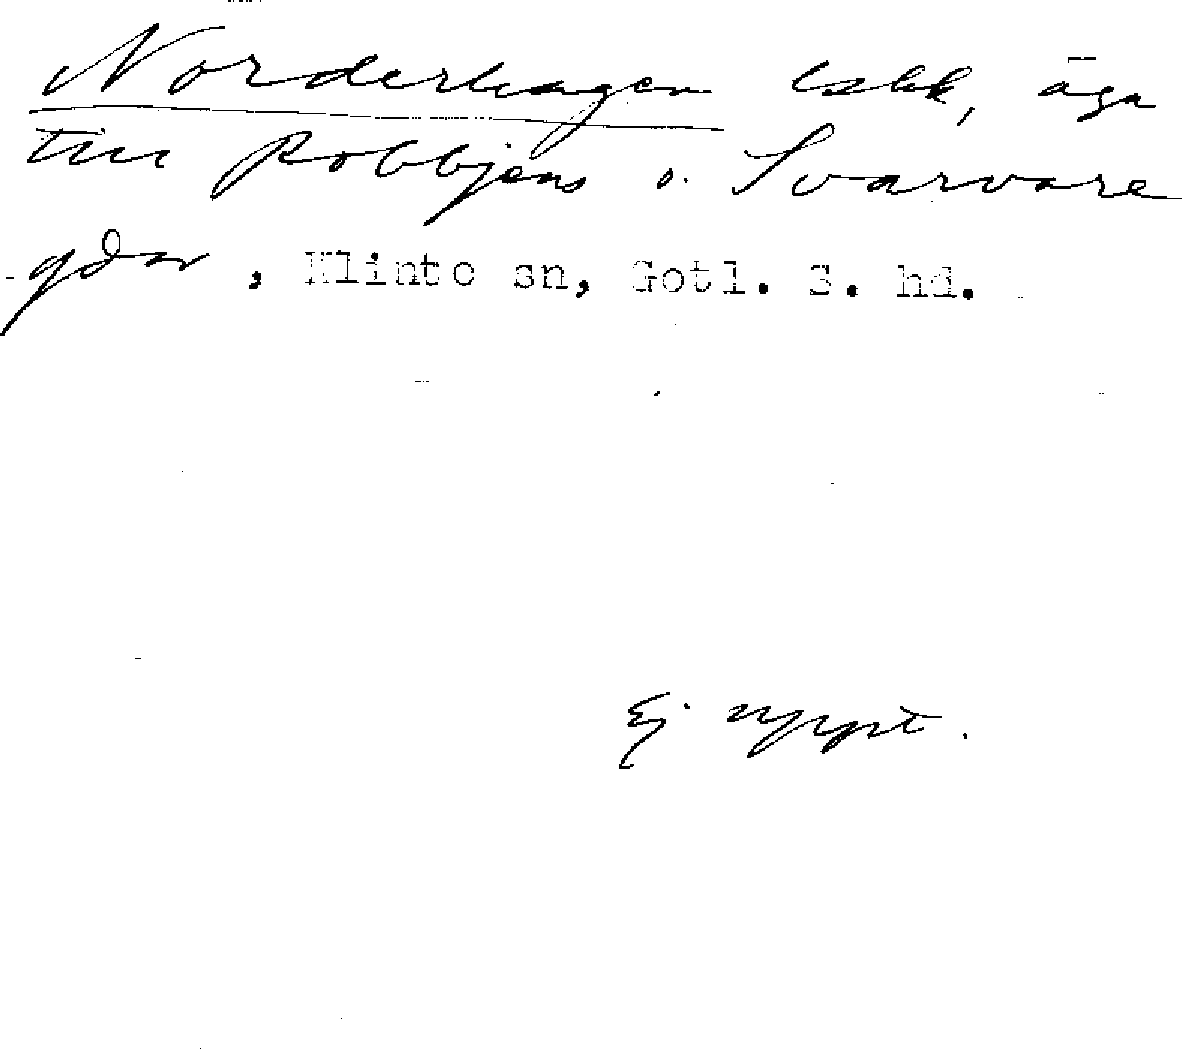 Norderhagen bskk, äga
till Robbjens o. Svarvare
gdar, Klinte sn, Gotl. S. hd.
Ej uppt.